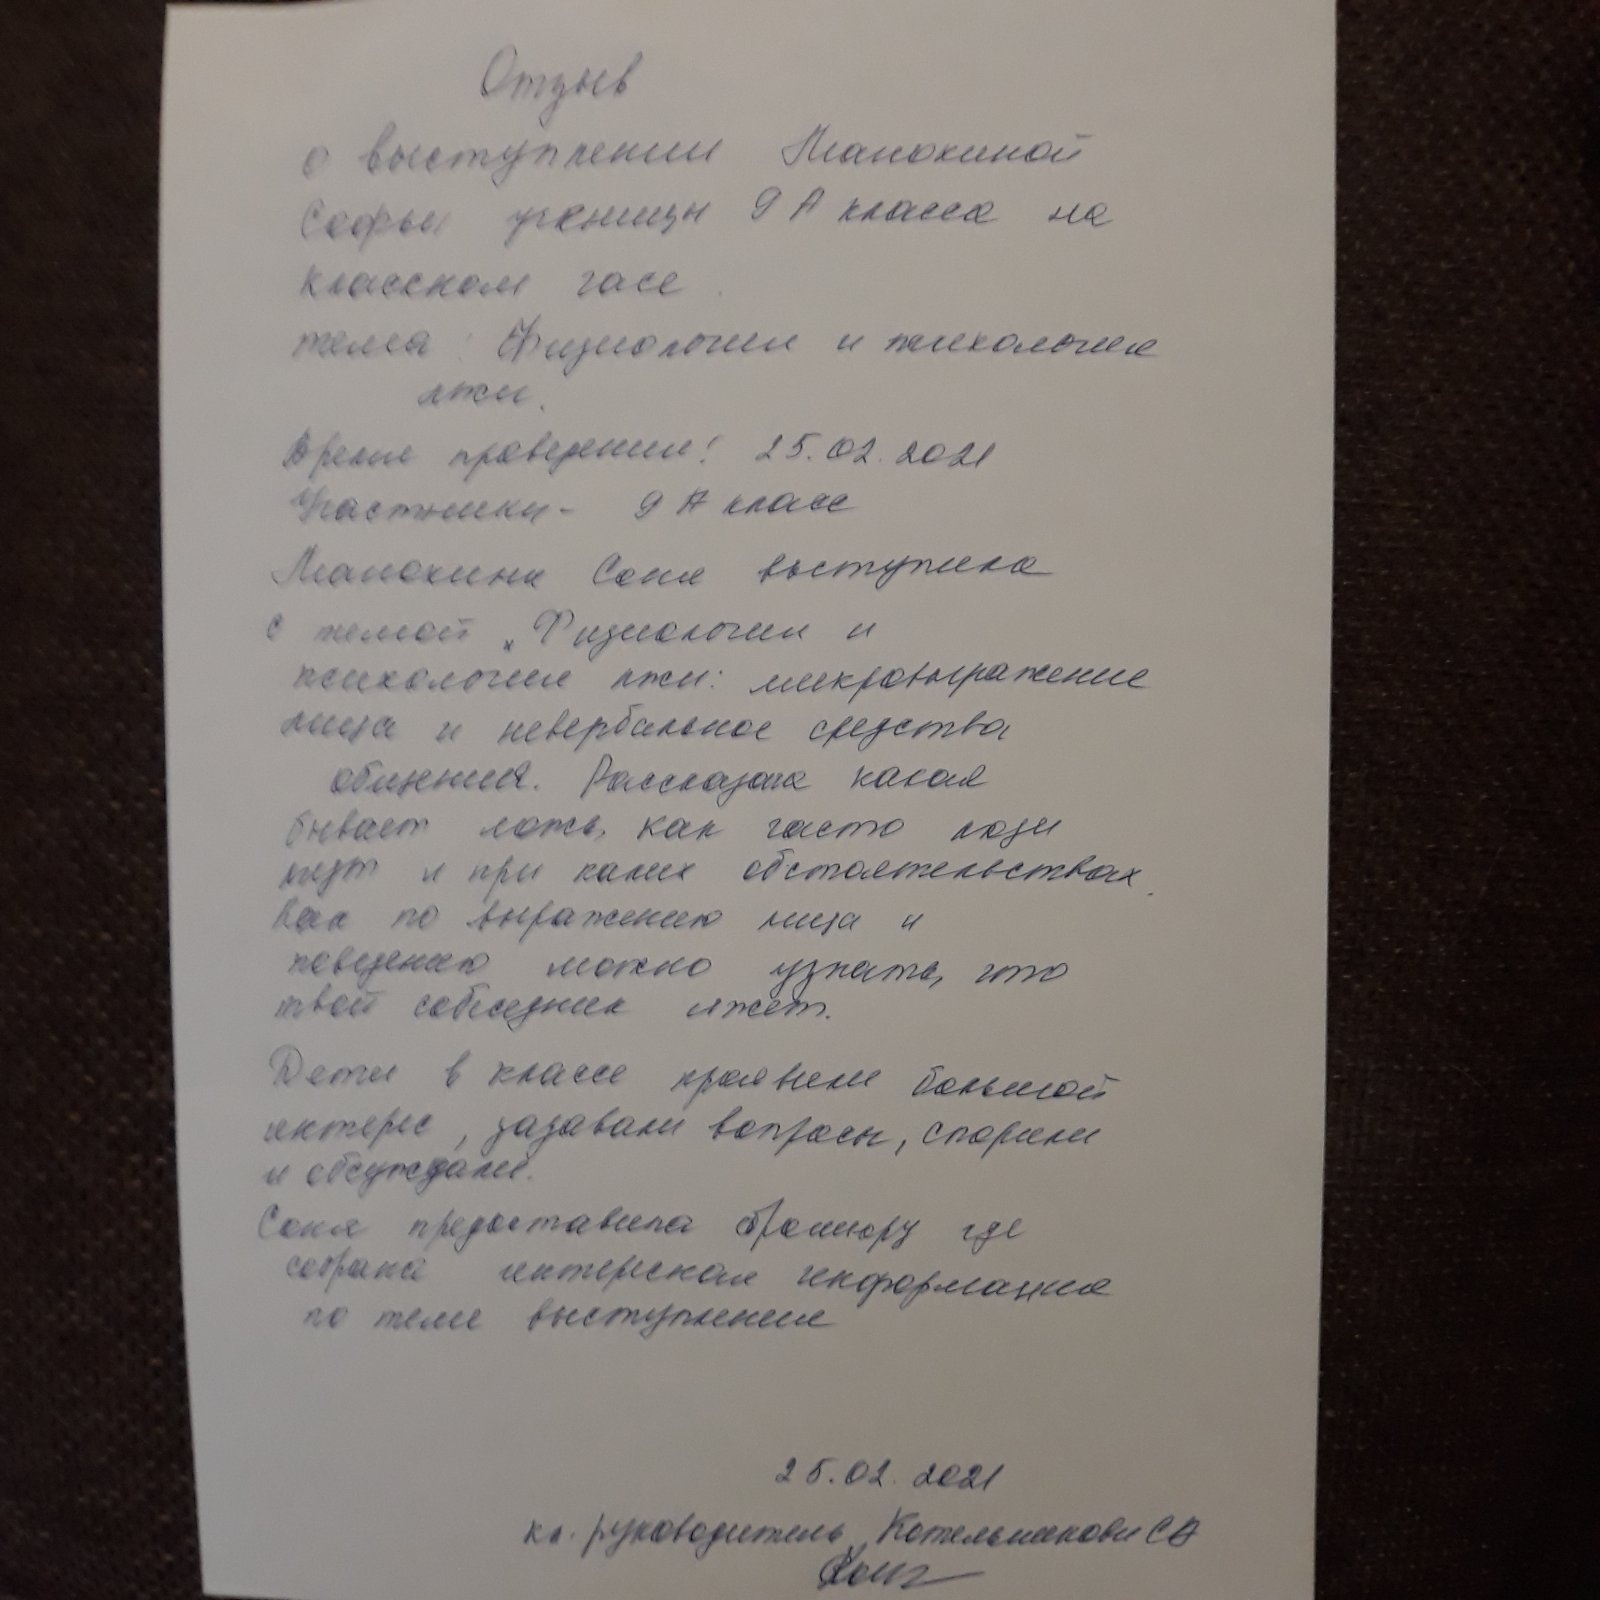 Отзыв
о выступлении Манохиной
Софьи ученицы 9 А класса на
классном часе.
тема: Физиология и психология
лжи.
Время проведения: 25.02.2021
Участники - 9 А класс
Манохина Соня выступила
с темой „Физиология и
психология лжи: микровыражение
лица и невербальное средства
общения. Рассказала какая
бывает ложь, как часто люди
лгут и при каких обстоятельствах.
Как по выражению лица и
поведению можно узнать, что
твой собеседник лжет.
Дети в классе проявили большой
интерес, задавали вопросы, спорили
и обсуждали.
Соня предоставила брошюру где
собрана интересная информация
по теме выступления
25.02.2021
кл. руководитель Котельникова СА